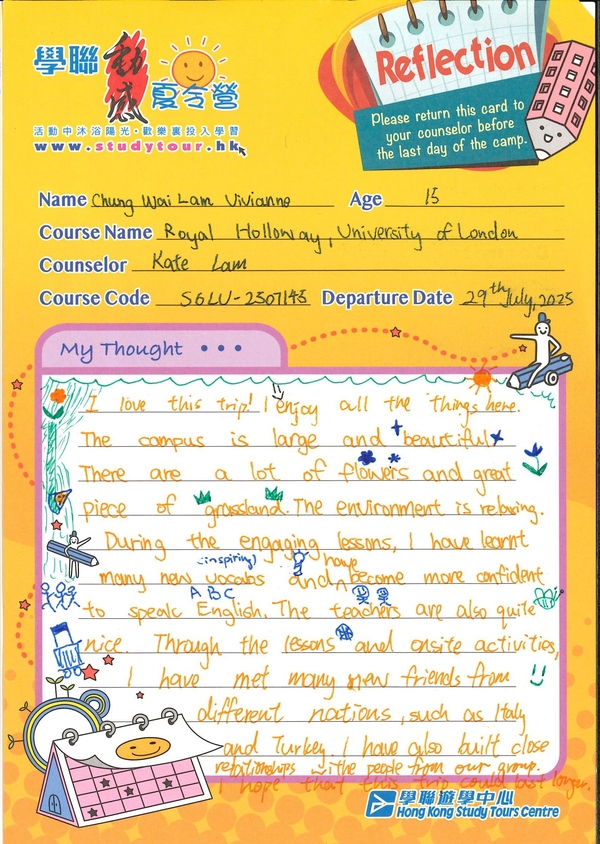 學聯 動感 夏令營
活動中沐浴陽光‧歡樂裏投入學習
www.studytour.hk
Reflection
Please return this card to
your counselor before
the last day of the camp.
Name Chung Wai Lam Vivianne Age 15
Course Name Royal Holloway, University of London
Counselor Kate Lam
Course Code SGLU-2507145 Departure Date 29th July, 2025
My Thought • • •
I love this trip! I enjoy all the things here.
The campus is large and beautiful.
There are a lot of flowers and great
piece of grassland. The environment is relaxing.
During the engaging lessons, I have learnt
(inspiring) have
many new vocabs and become more confident
A B C
to speak English. The teachers are also quite
nice. Through the lessons and onsite activities,
I have met many new friends from
different nations, such as Italy
and Turkey. I have also built close
relationships withe people from our group.
I hope that this trip could last longer.
學聯遊學中心
Hong Kong Study Tours Centre